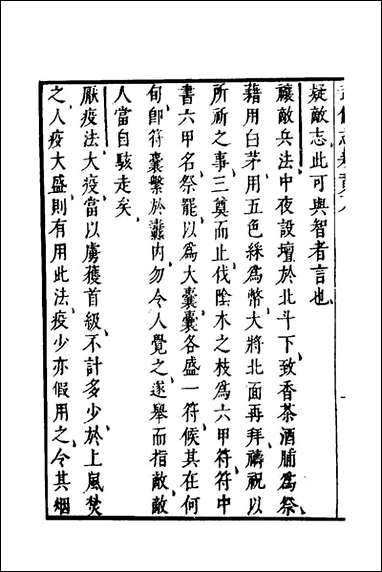 疑敵志此可與智者言也
禳敵兵法中夜設壇於北斗下致香茶酒脯為祭
藉用白茅用五色綵為幣大將北面再拜禱祝以
所祈之事三奠而止伐陰木之枝為六甲符符中
書六甲名祭罷以為大囊囊各盛一符候其在何
旬卽符囊繫於纛内勿令人覺之遂舉而指敵敵
人當自駭走矣
厭疫法大疫當以虜獲首級不計多少於上風焚
之人疫大盛則有用此法疫少亦假用之令其烟